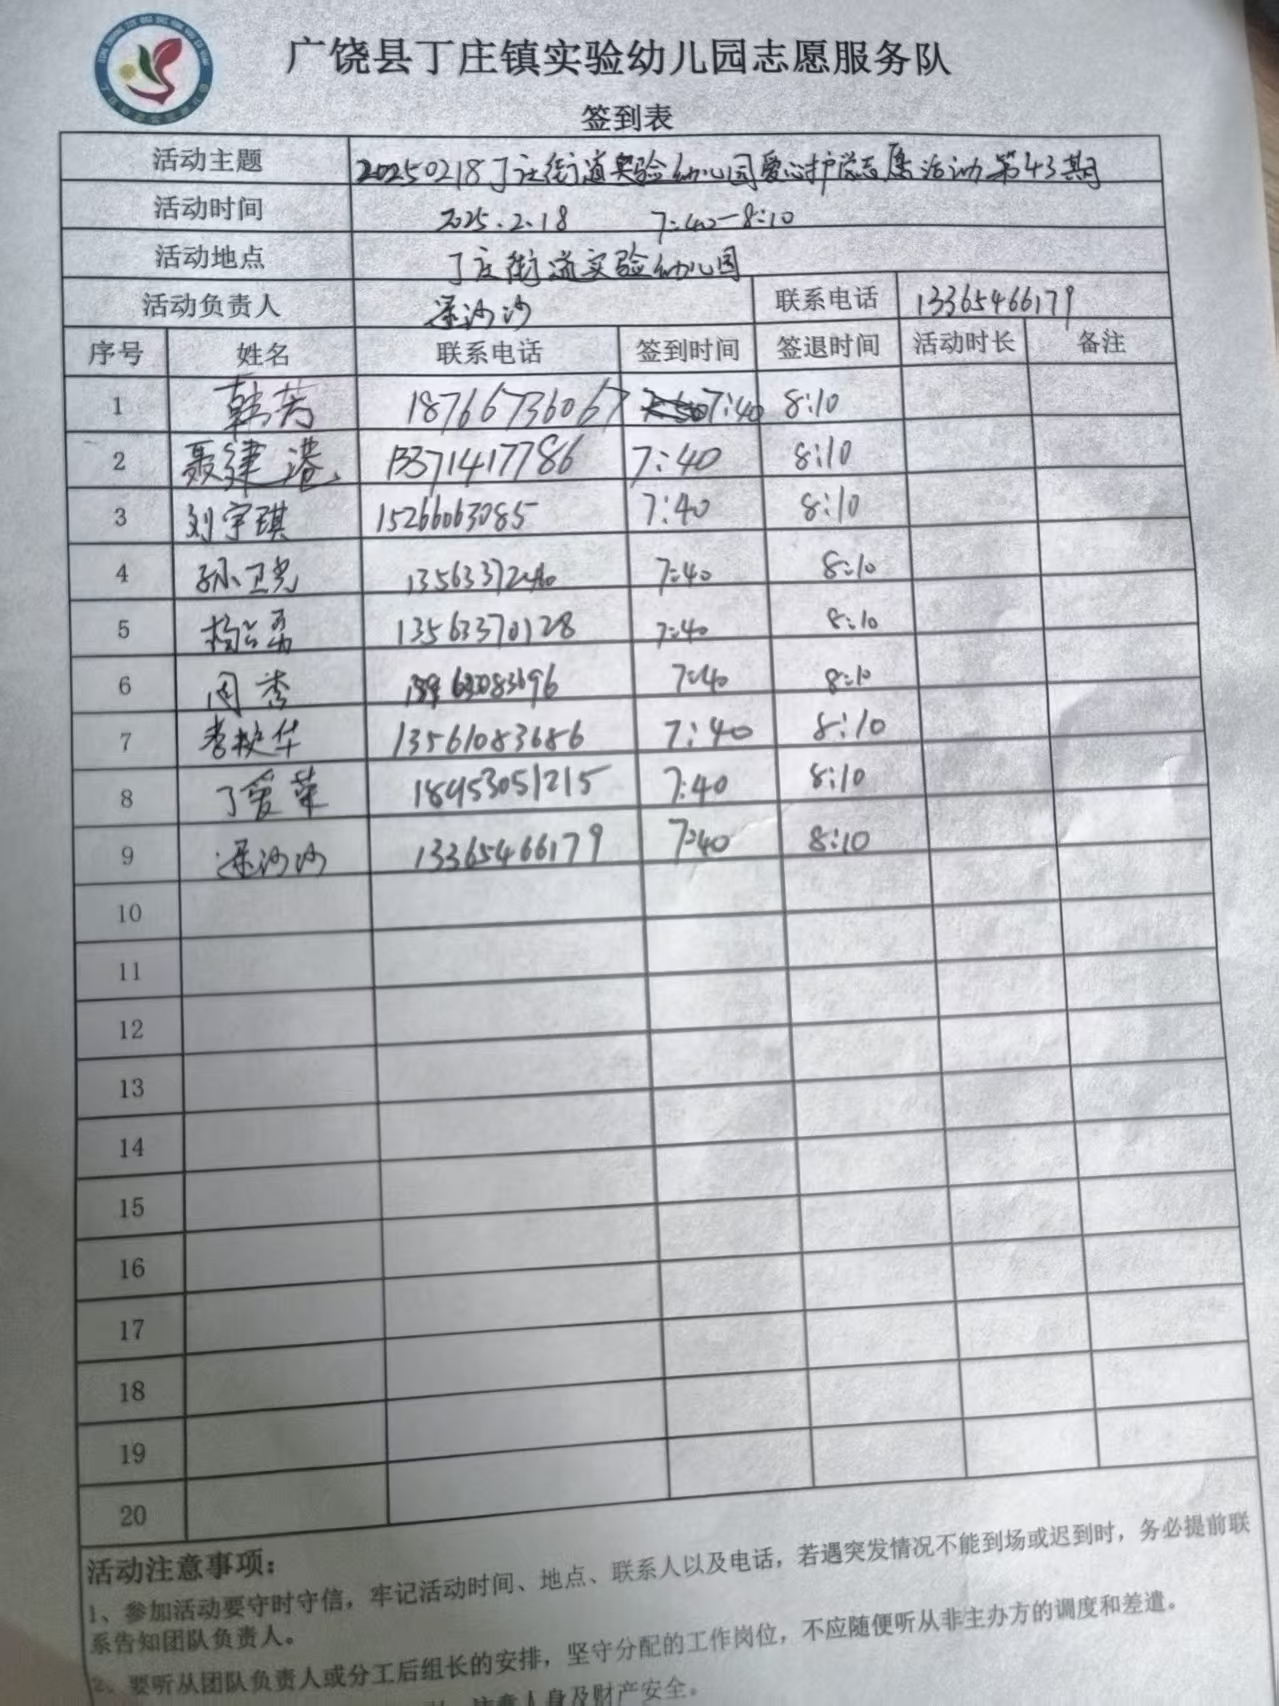 广饶县丁庄镇实验幼儿园志愿服务队
签到表
活动主题 20250218丁庄街道实验幼儿园爱心护学志愿活动第43期
活动时间 2025.2.18 7:40-8:10
活动地点 丁庄街道实验幼儿园
活动负责人 梁沙沙 联系电话 13365466179
序号 姓名 联系电话 签到时间 签退时间 活动时长 备注
1 韩芳 18766736067 7:40 8:10
2 聂建港 13371417786 7:40 8:10
3 刘宇琪 15266063085 7:40 8:10
4 孙卫光 7:40 8:10
5 13563370128 7:40 8:10
6 周秀 7:40 8:10
7 李 华 13561083686 7:40 8:10
8 丁爱荣 18453051215 7:40 8:10
9 梁沙沙 13365466179 7:40 8:10
10
11
12
13
14
15
16
17
18
19
20
活动注意事项：
1、参加活动要守时守信，牢记活动时间、地点、联系人以及电话，若遇突发情况不能到场或迟到时，务必提前联
系告知团队负责人。
2、要听从团队负责人或分工后组长的安排，坚守分配的工作岗位，不应随便听从非主办方的调度和差遣。
注意人身及财产安全。